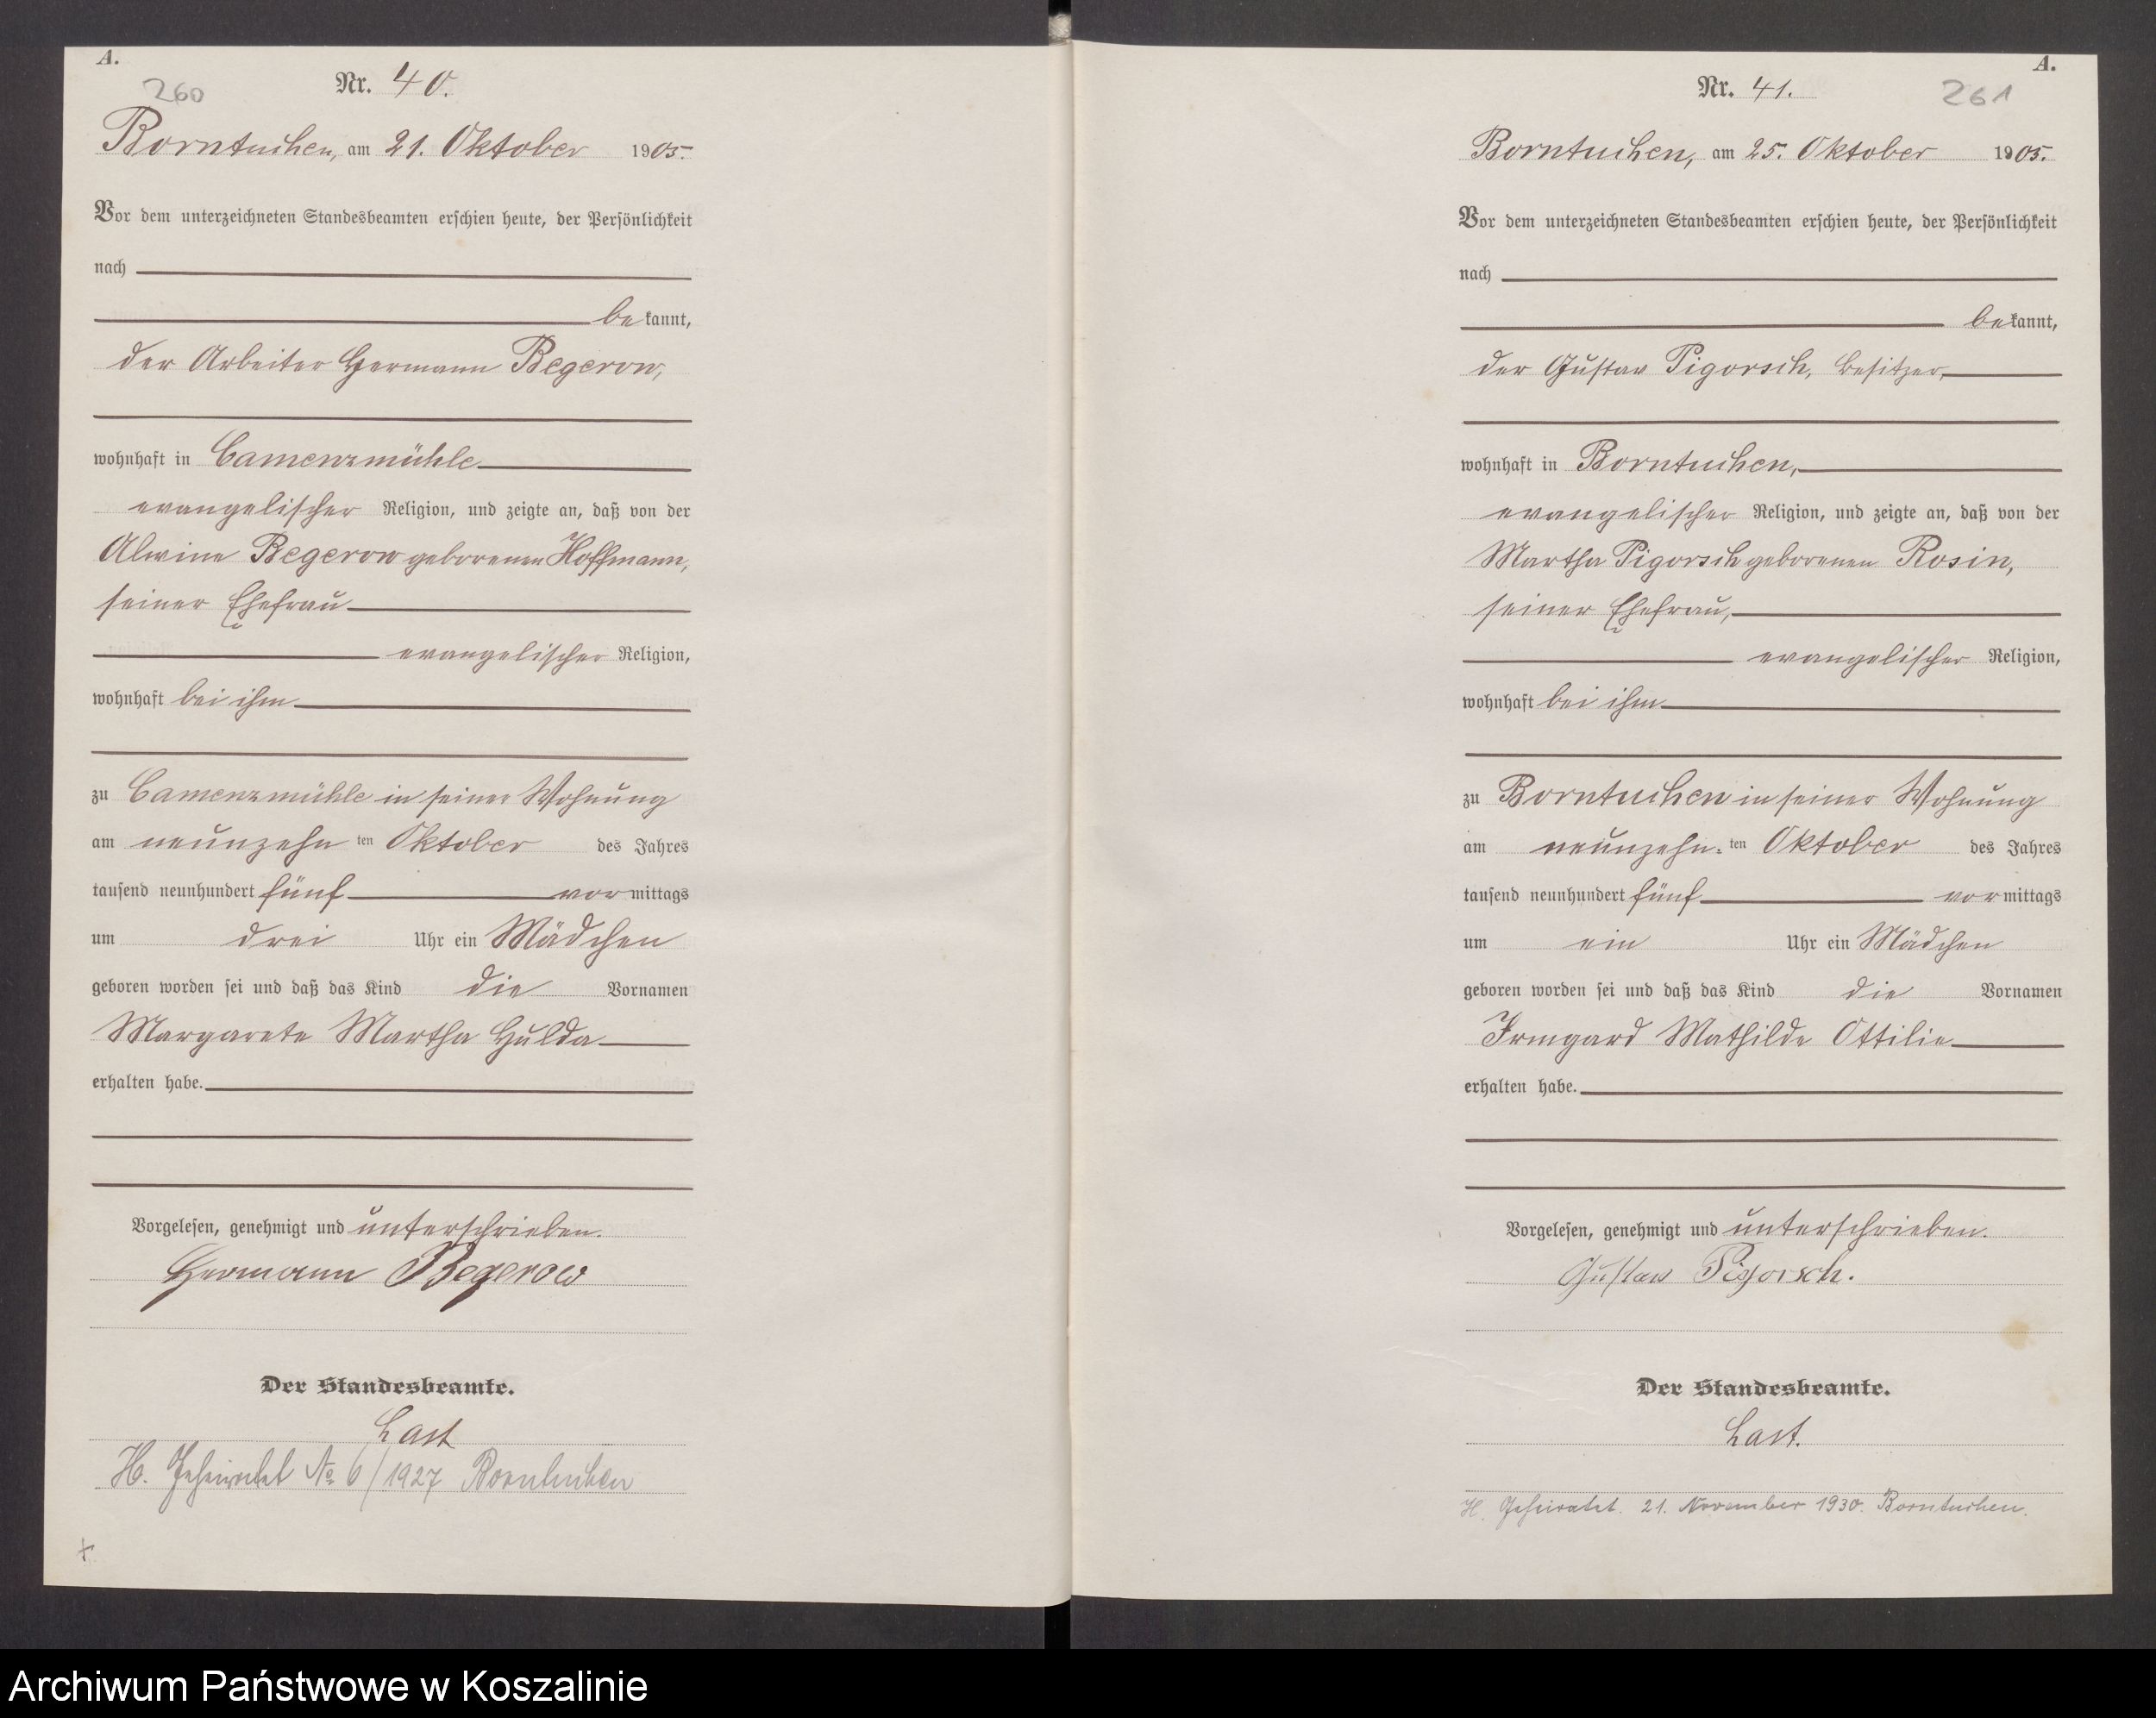 A.
260
Nr. 40.
Borntuchen, am 21. Oktober 1905.
Vor dem unterzeichneten Standesbeamten erschien heute, der Persönlichkeit
nach
bekannt,
der Arbeiter Hermann Begerow,
wohnhaft in Camenzmühle
evangelischer Religion, und zeigte an, daß von der
Alwine Begerow geborenen Hoffmann,
seiner Ehefrau
evangelischer Religion,
wohnhaft bei ihm
zu Camenzmühle in seiner Wohnung
am neunzehn ten Oktober des Jahres
tausend neunhundert fünf vormittags
um drei Uhr ein Mädchen
geboren worden sei und daß das Kind die Vornamen
Margarete Martha Hulda
erhalten habe.
Vorgelesen, genehmigt und unterschrieben.
Hermann Begerow
Der Standesbeamte.
Last
H. Geheiratet No 6/1927 Borntuchen
A.
Nr. 41.
261
Borntuchen, am 25. Oktober 1905.
Vor dem unterzeichneten Standesbeamten erschien heute, der Persönlichkeit
nach
bekannt,
der Gustav Pigorsch, Besitzer,
wohnhaft in Borntuchen,
evangelischer Religion, und zeigte an, daß von der
Martha Pigorsch geborenen Rosin,
seiner Ehefrau,
evangelischer Religion,
wohnhaft bei ihm
zu Borntuchen in seiner Wohnung
am neunzehn ten Oktober des Jahres
tausend neunhundert fünf vormittags
um ein Uhr ein Mädchen
geboren worden sei und daß das Kind die Vornamen
Irmgard Mathilde Ottilie
erhalten habe.
Vorgelesen, genehmigt und unterschrieben.
Gustav Pigorsch.
Der Standesbeamte.
Last.
H. Geheiratet. 21. November 1930. Borntuchen.
Archiwum Państwowe w Koszalinie